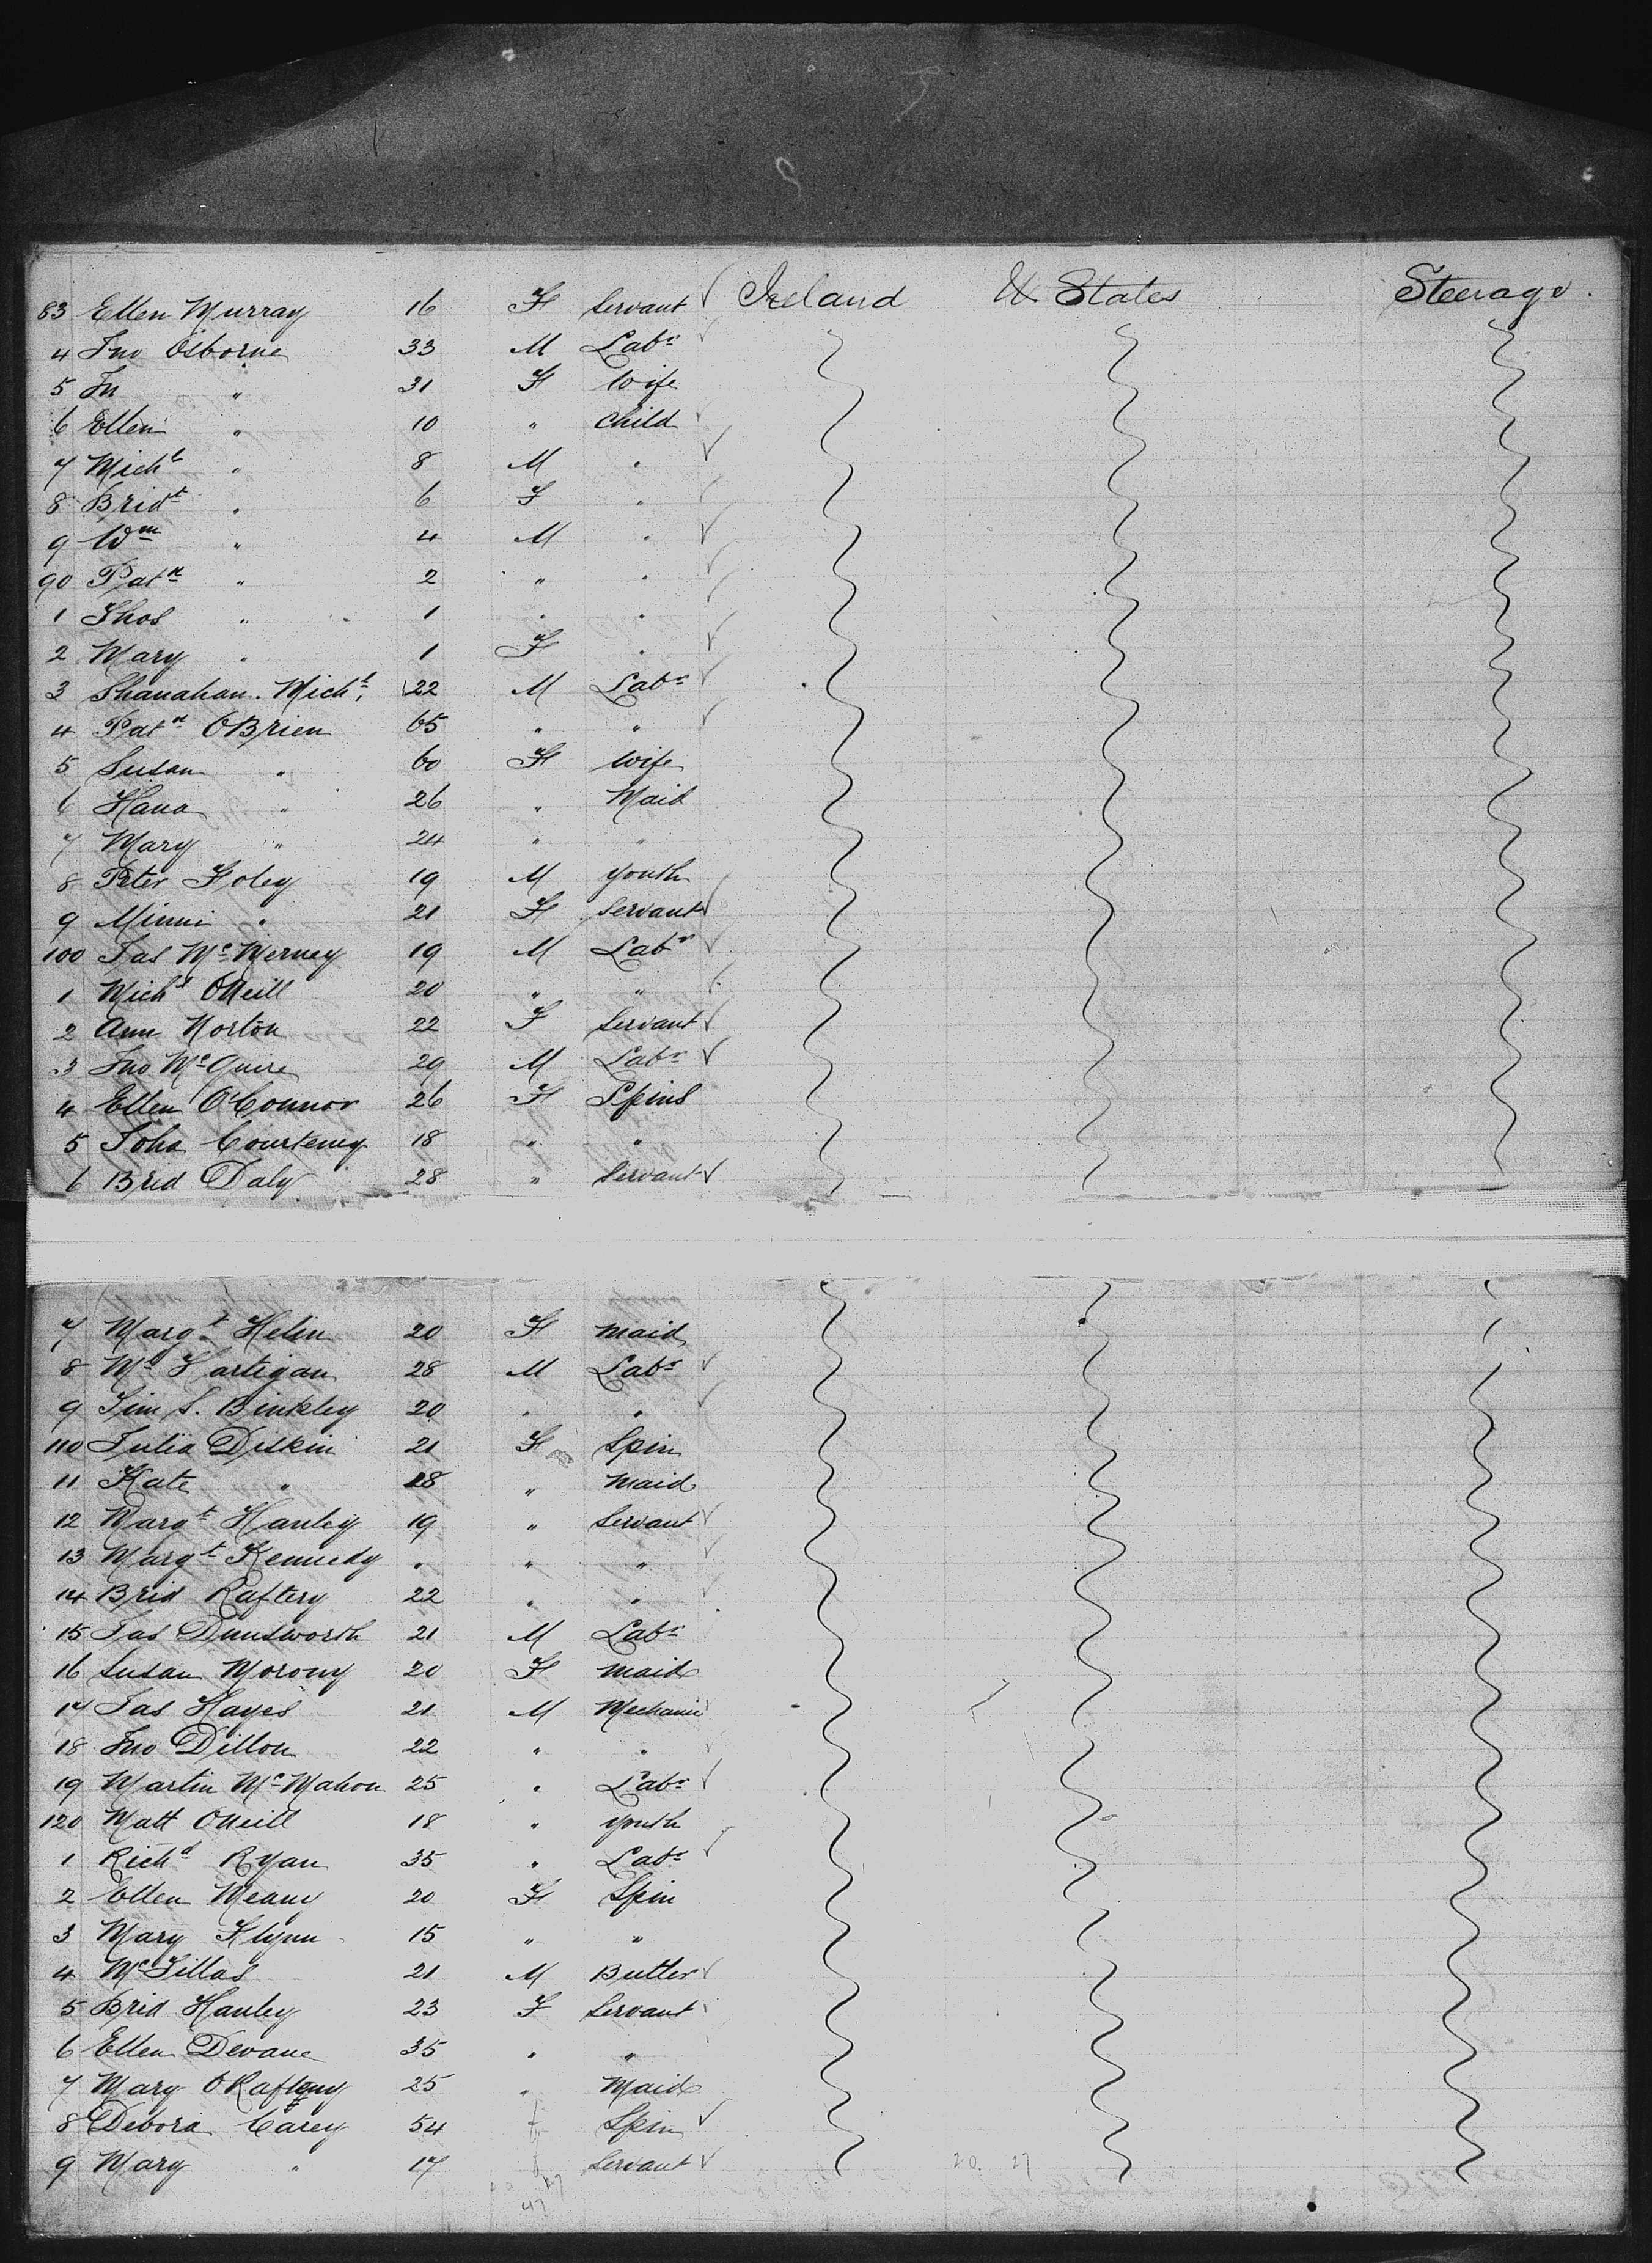 83 Ellen Murray 16 F Servant Ireland U States Steerage.
4 Jno Osborne 33 M Labr
5 Jn " 31 F Wife
6 Ellen " 10 " Child
7 Michl " 8 M "
8 Bridt " 6 F "
9 Wm " 4 M "
90 Patk " 2 " "
1 Thos " 1 " "
2 Mary " 1 F "
3 Shanahan. Michl 22 M Labr
4 Patk OBrien 65 " "
5 Susan " 60 F Wife
6 Hana " 26 " Maid
7 Mary " 24 " "
8 Peter Foley 19 M youth
9 Minni " 21 F Servant
100 Jas Mc Nerney 19 M Labr
1 Michl ONeill 20 " "
2 Ann Norton 22 F Servant
3 Jno McGuire 29 M Labr
4 Ellen O'Connor 26 F Spins
5 Joha Courteney 18 " "
6 Brid Daly 28 " Servant
7 Margt Helin 20 F Maid
8 Mc Hartigan 28 M Labr
9 Tim S. Binkley 20 " "
110 Julia Diskin 21 F Spin
11 Kate " 18 " Maid
12 Margt Hanley 19 " Servant
13 Margt Kennedy " " "
14 Brid Raftery 22 " "
15 Jas Dunsworth 21 M Labr
16 Susan Morony 20 F Maid
17 Jas Hayes 21 M Mechanic
18 Jno Dillon 22 " "
19 Martin McMahon 25 " Labr
120 Matt ONeill 18 " youth
1 Richd Ryan 35 " Labr
2 Ellen Meany 20 F Spin
3 Mary Flynn 15 " "
4 21 M Butler
5 Brid Hanley 23 F Servant
6 Ellen Devane 35 " "
7 Mary 25 " Maid
8 Debora Carey 54 f Spin
9 Mary " 17 f Servant 20. 27
47